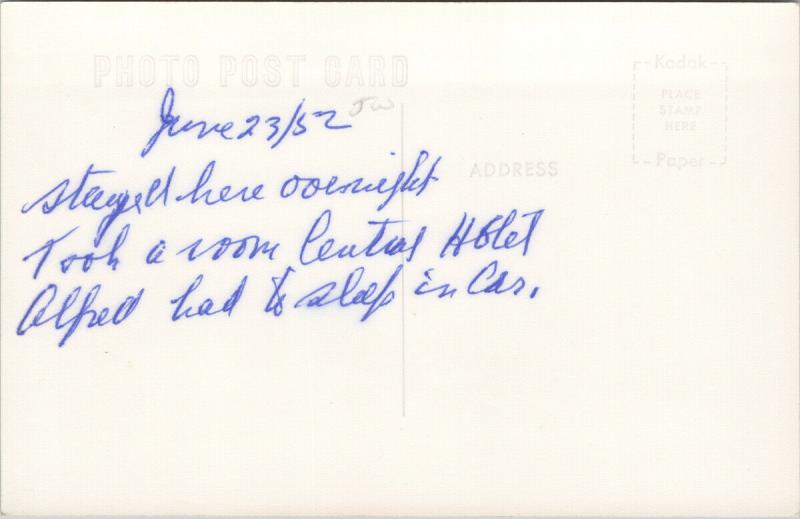 PHOTO POST CARD
Kodak
PLACE
STAMP
HERE
Paper
ADDRESS
JW
June 23/52
stayed here overnight
Took a room Central Hotel
Alfred had to sleep in Car.